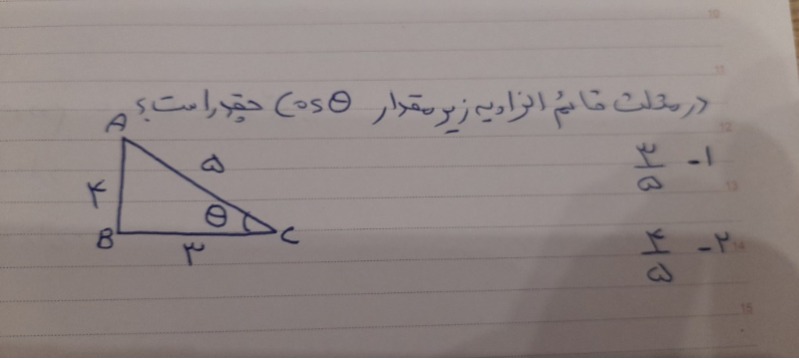 در مثلث قائم الزاویه زیر مقدار Cosθ چقدر است؟
A
۵
۴
θ
B
C
۳
۱- ۳/۵
۲- ۴/۵
10
11
12
13
14
15